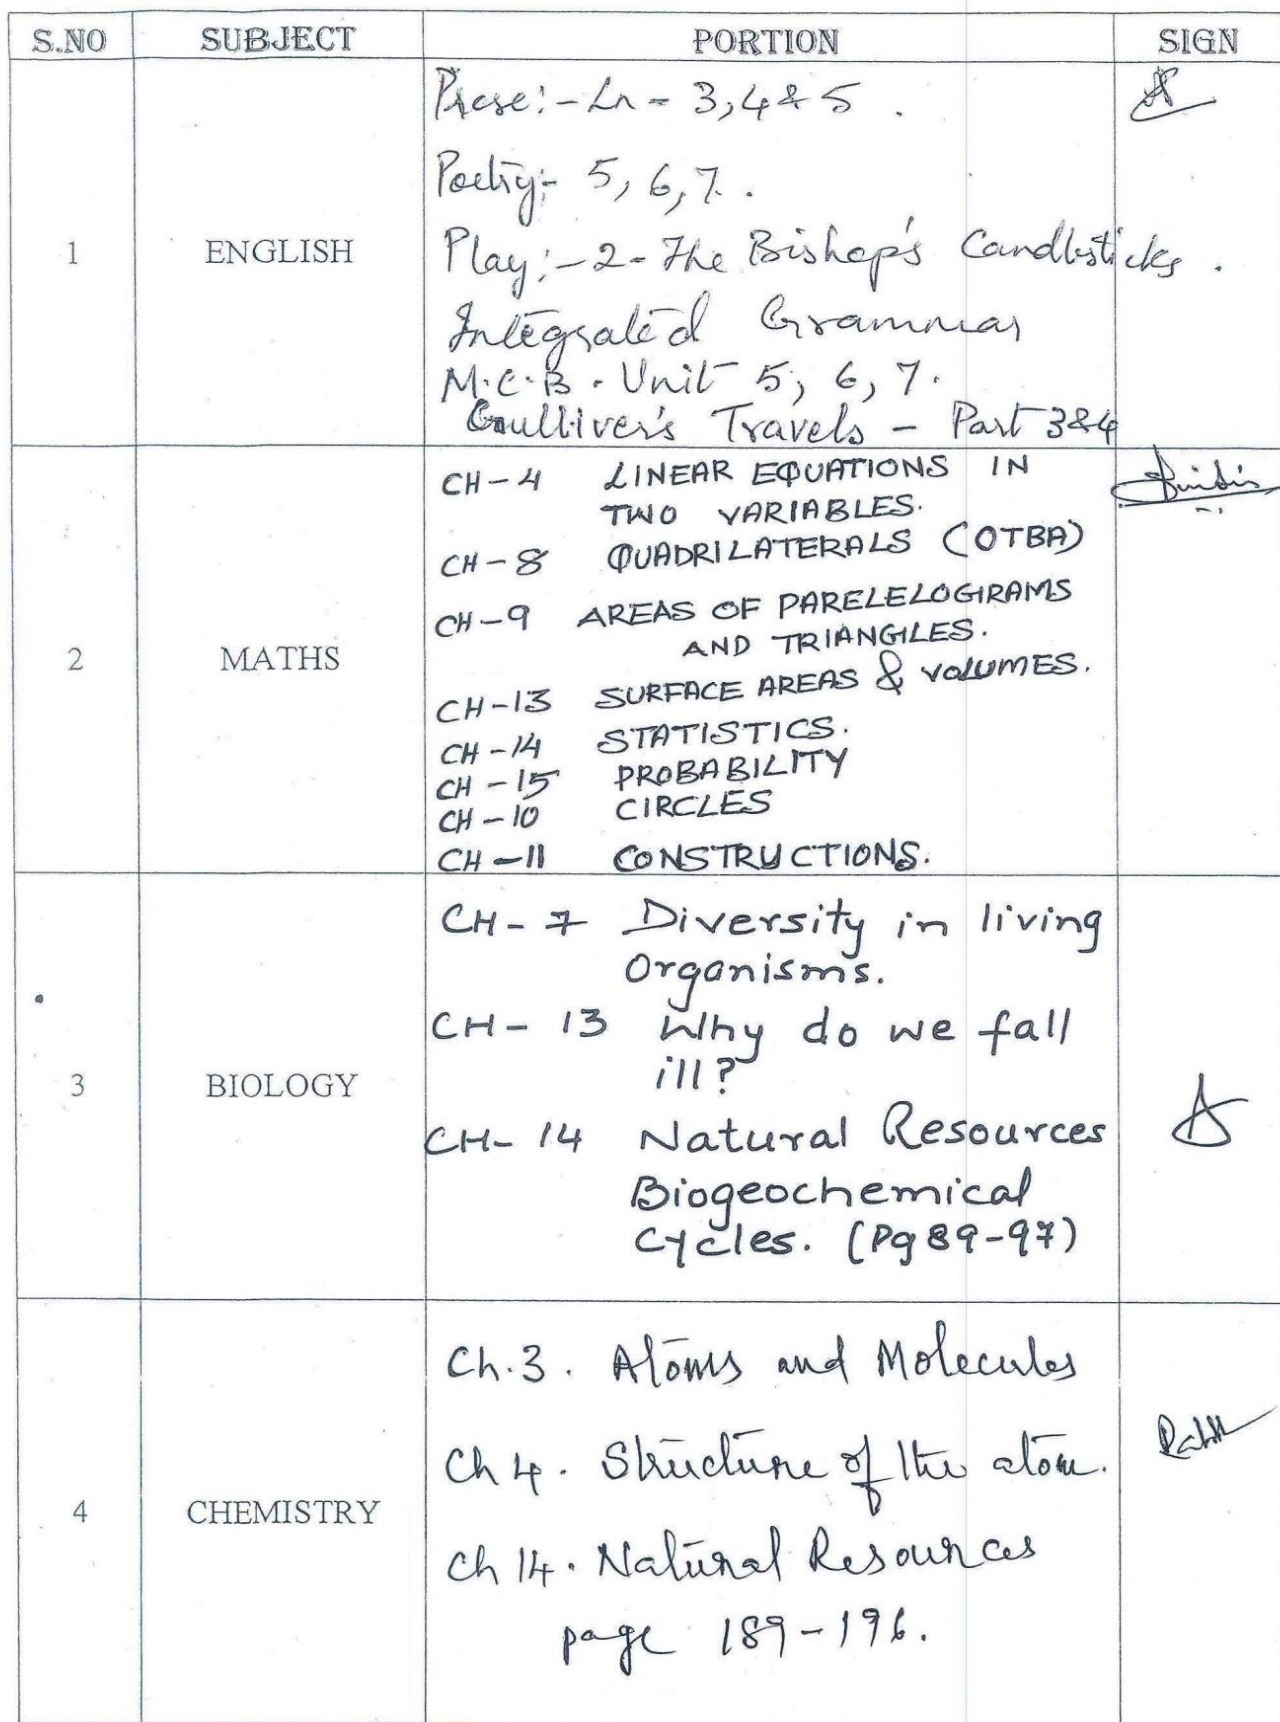 S.NO SUBJECT PORTION SIGN
1 ENGLISH
Prose:- Ln - 3,4 & 5.
Poetry:- 5, 6, 7.
Play:- 2 - The Bishop's Candlesticks.
Integrated Grammar
M.C.B. Unit 5, 6, 7.
Gulliver's Travels - Part 3&4
2 MATHS
CH-4 LINEAR EQUATIONS IN
TWO VARIABLES.
CH-8 QUADRILATERALS (OTBA)
CH-9 AREAS OF PARELELOGRAMS
AND TRIANGLES.
CH-13 SURFACE AREAS & VOLUMES.
CH-14 STATISTICS.
CH-15 PROBABILITY
CH-10 CIRCLES
CH-11 CONSTRUCTIONS.
3 BIOLOGY
CH-7 Diversity in living
Organisms.
CH-13 Why do we fall
ill?
CH-14 Natural Resources
Biogeochemical
Cycles. (Pg 89-97)
4 CHEMISTRY
Ch.3. Atoms and Molecules
Ch 4. Structure of the atom.
Ch 14. Natural Resources
page 189-196.